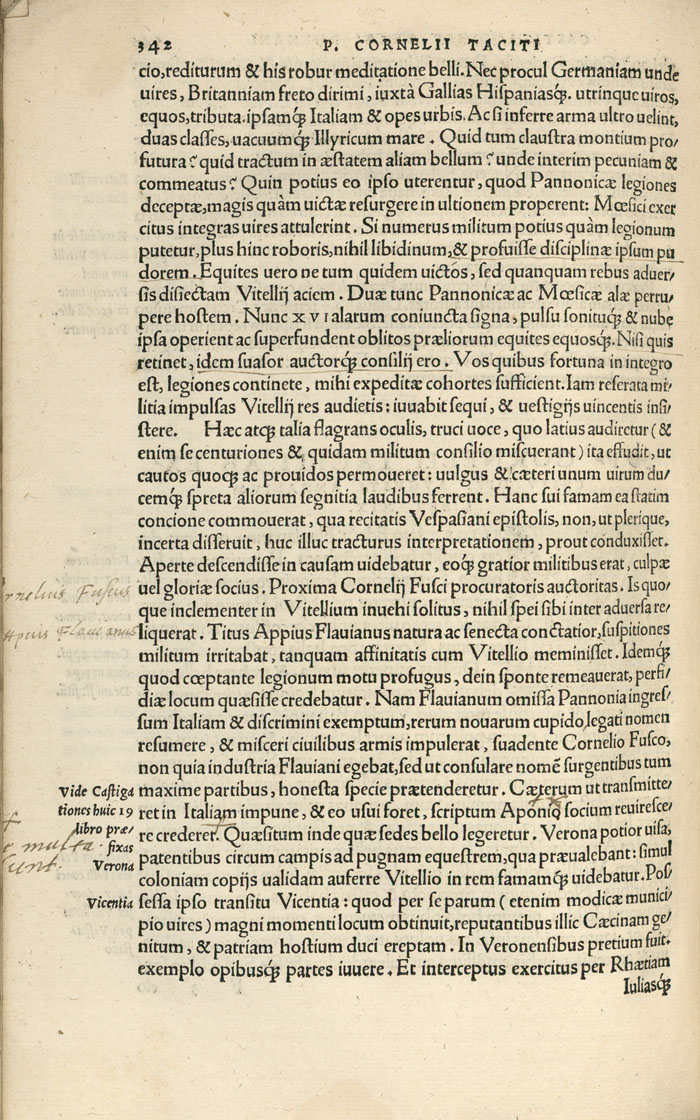 342 P. CORNELII TACITI
cio,rediturum & his robur meditatione belli.Nec procul Germaniam unde
uires, Britanniam freto dirimi, iuxtà Gallias Hispaniasq́;. utrinque uiros,
equos,tributa.ipsamq́; Italiam & opes urbis. Ac si inferre arma ultro uelint,
duas classes, uacuumq́; Illyricum mare. Quid tum claustra montium pro/
futura? quid tractum in æstatem aliam bellum? unde interim pecuniam &
commeatus? Quin potius eo ipso uterentur, quod Pannonicæ legiones
deceptæ,magis quàm uictæ resurgere in ultionem properent: Mœsici exer
citus integras uires attulerint. Si numerus militum potius quàm legionum
putetur,plus hinc roboris,nihil libidinum,& profuisse disciplinæ ipsum pu
dorem. Equites uero ne tum quidem uictos, sed quanquam rebus aduer/
sis disiectam Vitellij aciem. Duæ tunc Pannonicæ ac Mœsicæ alæ perru/
pere hostem. Nunc XVI alarum coniuncta signa, pulsu sonituq́; & nube
ipsa operient ac superfundent oblitos præliorum equites equosq́;. Nisi quis
retinet, idem suasor auctorq́; consilij ero. Vos quibus fortuna in integro
est, legiones continete, mihi expeditæ cohortes sufficient. Iam reserata mi/
litia impulsas Vitellij res audietis: iuuabit sequi, & uestigijs uincentis insi/
stere. Hæc atq́; talia flagrans oculis, truci uoce, quo latius audiretur (&
enim se centuriones & quidam militum consilio miscuerant) ita effudit, ut
cautos quoq́; ac prouidos permoueret: uulgus & cæteri unum uirum du/
cemq́; spreta aliorum segnitia laudibus ferrent. Hanc sui famam ea statim
concione commouerat, qua recitatis Vespasiani epistolis, non, ut plerique,
incerta disseruit, huc illuc tracturus interpretationem, prout conduxisset.
Aperte descendisse in causam uidebatur, eoq́; gratior militibus erat, culpæ
uel gloriæ socius. Proxima Cornelij Fusci procuratoris auctoritas. Is quo/
rnelius Fuscus
que inclementer in Vitellium inuehi solitus, nihil spei sibi inter aduersa re/
Appius Flauianus
liquerat. Titus Appius Flauianus natura ac senecta conctatior,suspitiones
militum irritabat, tanquam affinitatis cum Vitellio meminisset. Idemq́;
quod cœptante legionum motu profugus, dein sponte remeauerat, perfi/
diæ locum quæsisse credebatur. Nam Flauianum omissa Pannonia ingres/
sum Italiam & discrimini exemptum,rerum nouarum cupido,legati nomen
resumere, & misceri ciuilibus armis impulerat, suadente Cornelio Fusco,
non quia industria Flauiani egebat,sed ut consulare nomē surgentibus tum
Vide Castiga
maxime partibus, honesta specie prætenderetur. Cæterum ut transmitte/
tiones huic 19
ret in Italiam impune, & eo usui foret, scriptum Aponio socium reuiresce/
libro præ/
re crederet. Quæsitum inde quæ sedes bello legeretur. Verona potior uisa,
fixas
multa
sunt.
Verona
patentibus circum campis ad pugnam equestrem,qua præualebant: simul
coloniam copijs ualidam auferre Vitellio in rem famamq́; uidebatur. Pos/
Vicentia
sessa ipso transitu Vicentia: quod per se parum (etenim modicæ munici/
pio uires) magni momenti locum obtinuit,reputantibus illic Cæcinam ge/
nitum, & patriam hostium duci ereptam. In Veronensibus pretium fuit.
exemplo opibusq́; partes iuuere. Et interceptus exercitus per Rhætiam
Iuliasq́;